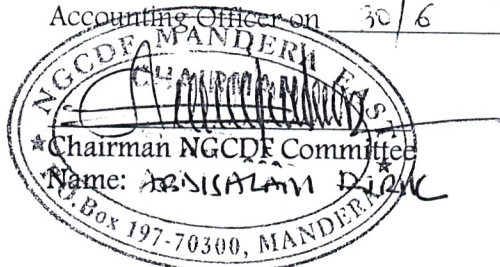 Accounting Officer on 30/6
NGCDF MANDERA EAST
Chairman NGCDF Committee
Name: ABDISALAM
P.O. Box 197-70300, MANDERA